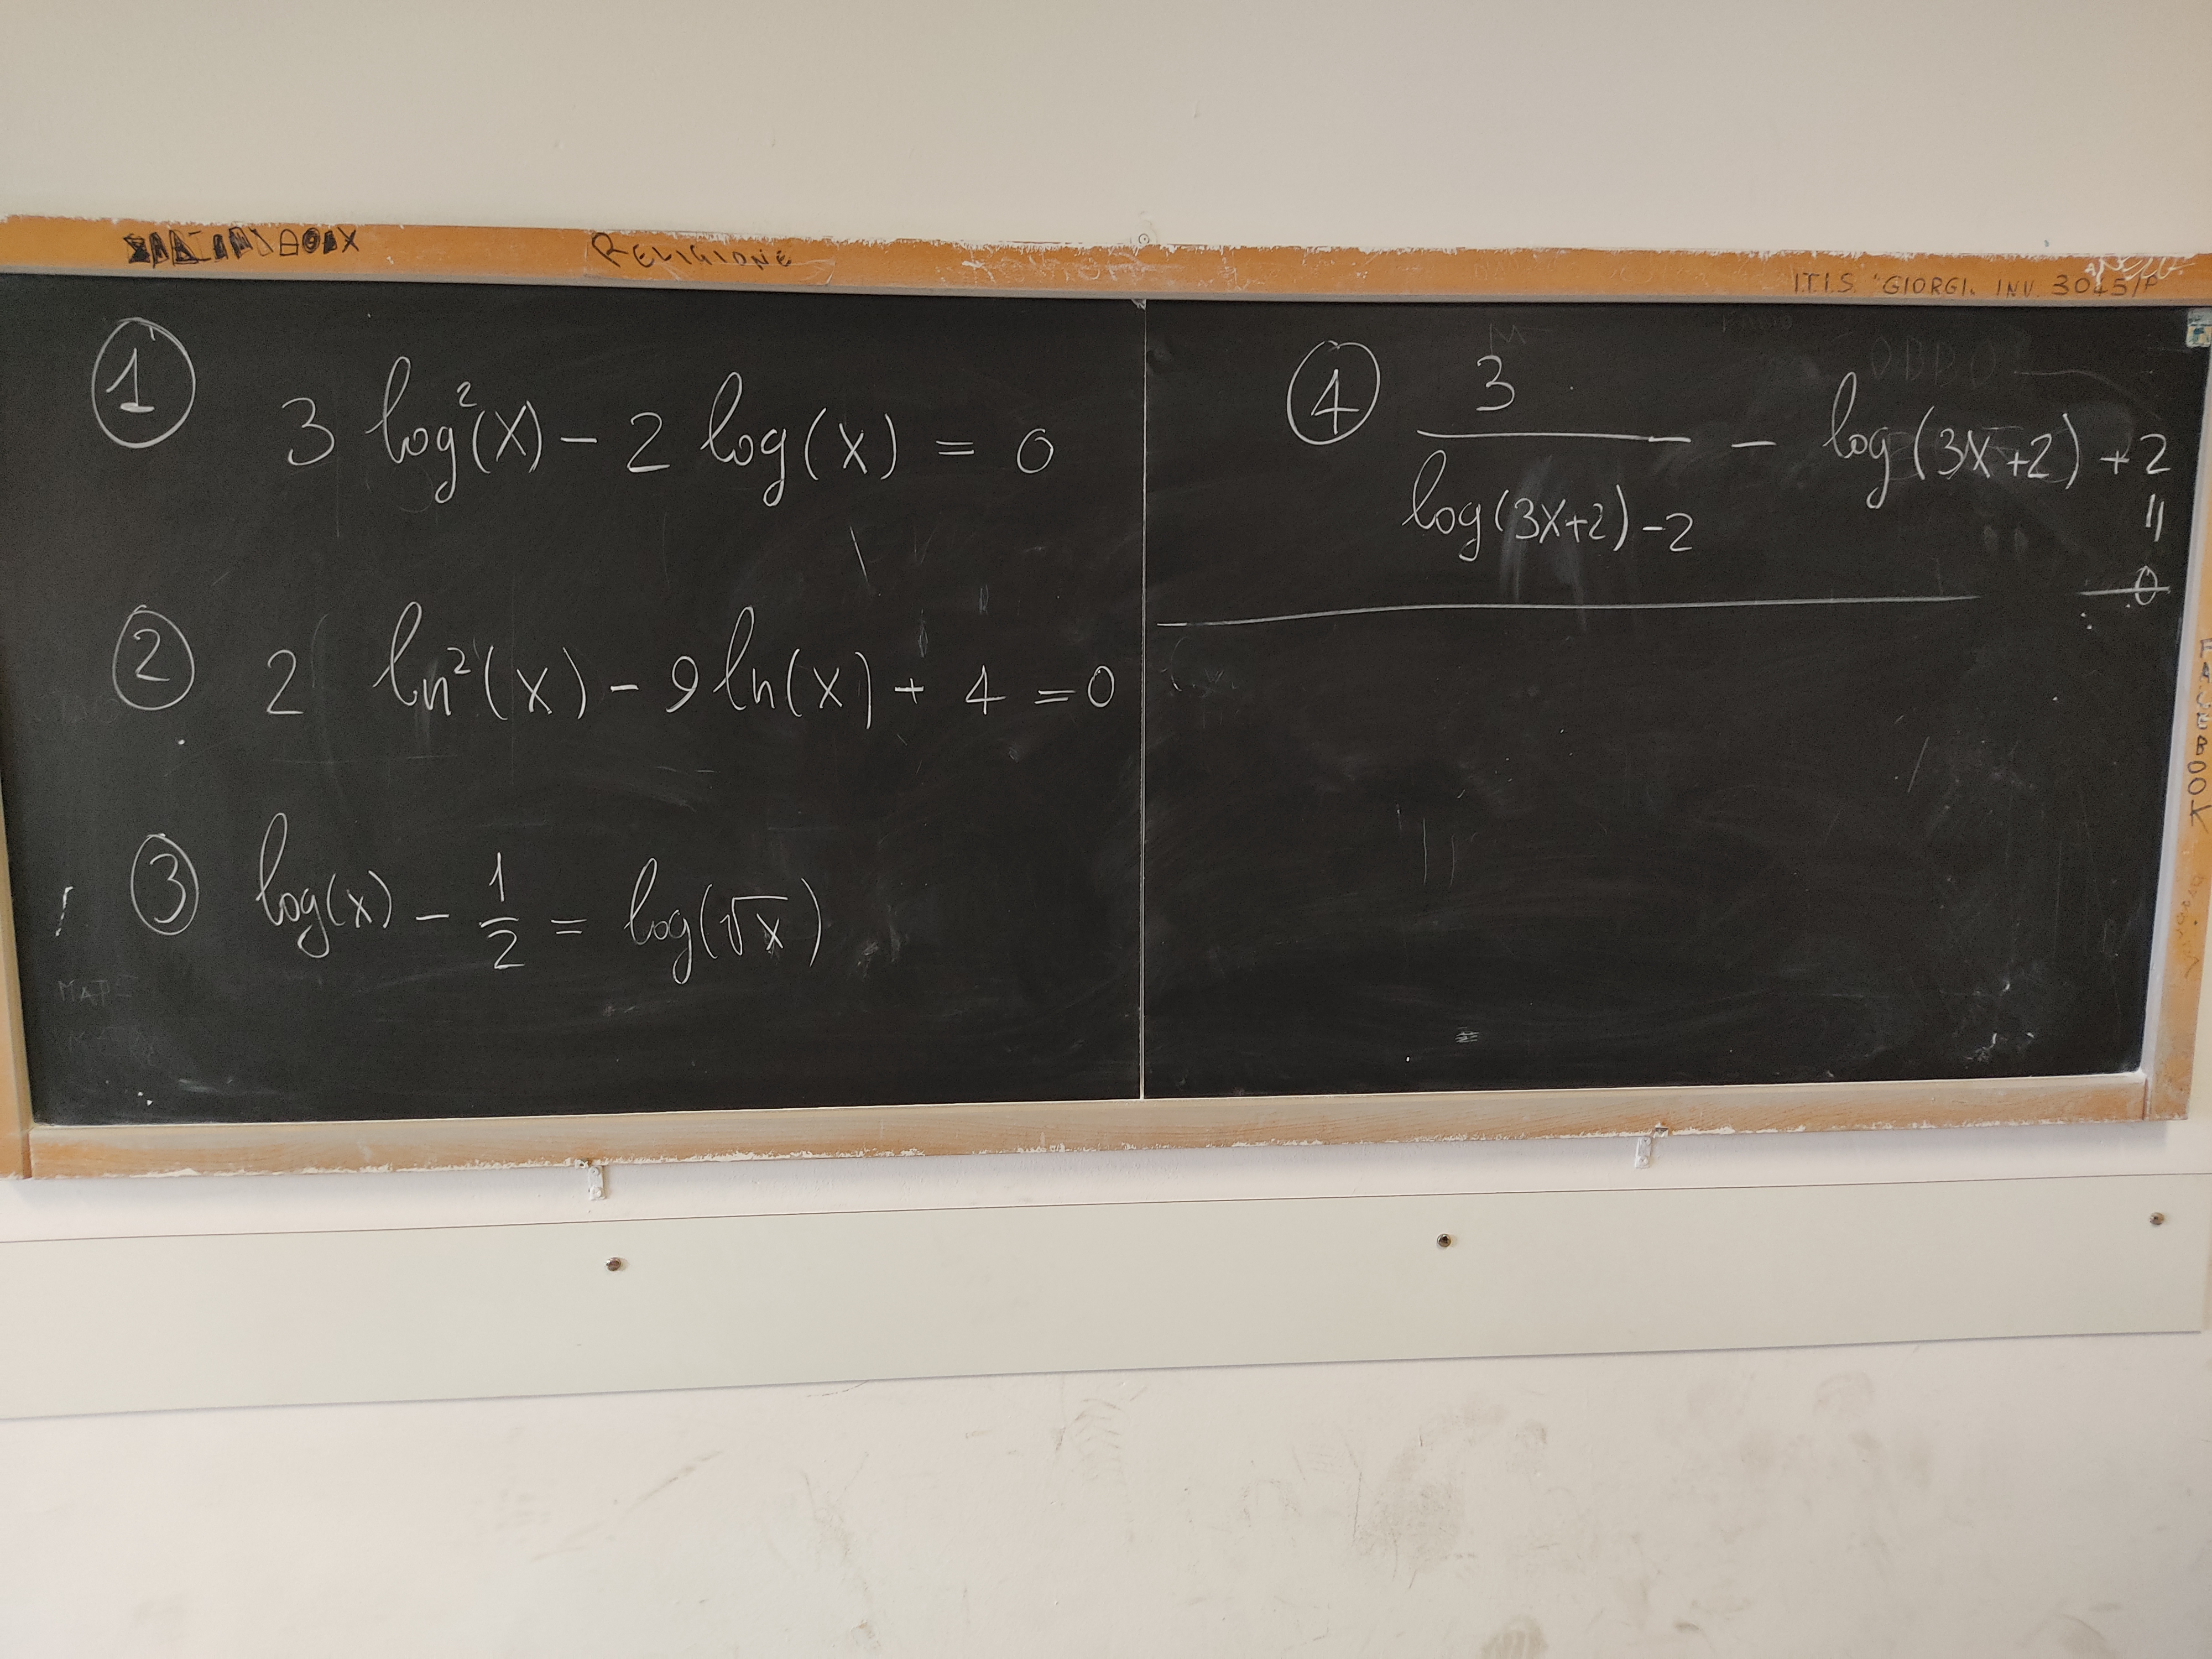 RELIGIONE
I.T.I.S. "GIORGI. INV. 3045/P
① 3 log²(x) - 2 log(x) = 0
② 2 ln²(x) - 9 ln(x) + 4 = 0
③ log(x) - 1/2 = log(√x)
④ 3/(log(3x+2)-2) - log(3x+2) + 2
=
0
FACEBOOK